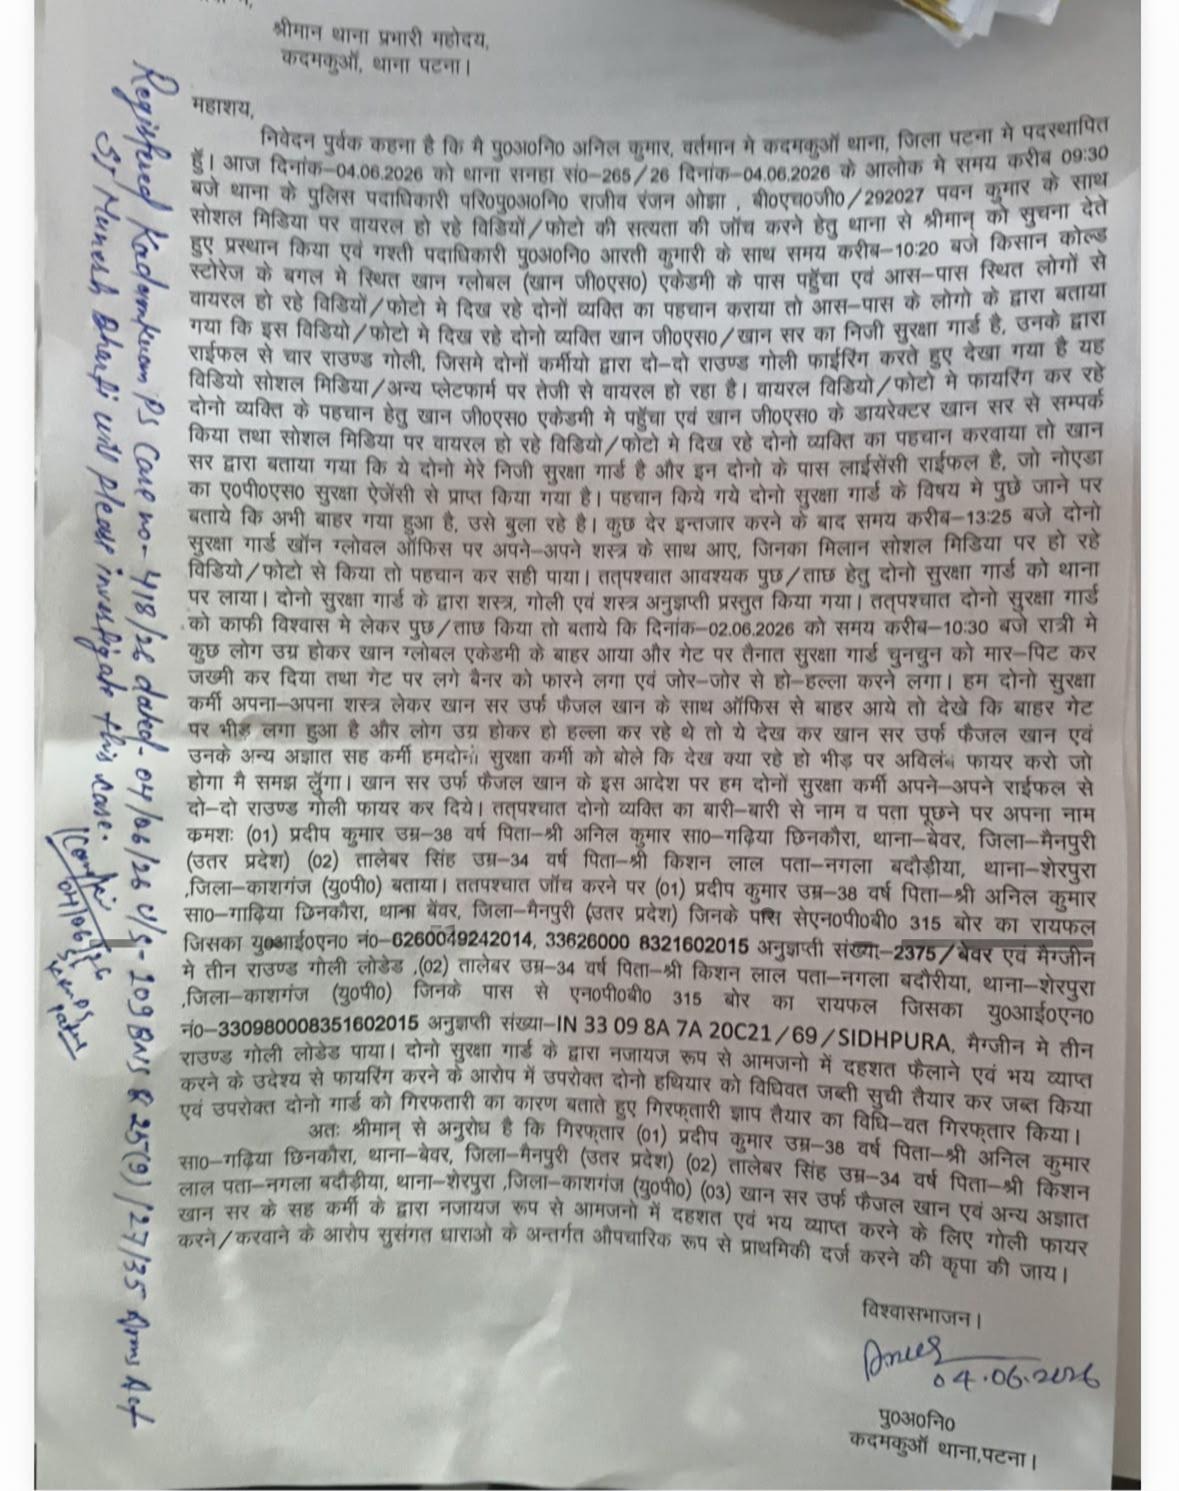 श्रीमान थाना प्रभारी महोदय,
कदमकुऑं, थाना पटना।
महाशय,
निवेदन पुर्वक कहना है कि मै पु0अ0नि0 अनिल कुमार, वर्तमान मे कदमकुऑं थाना, जिला पटना मे पदस्थापित
हुँ। आज दिनांक–04.06.2026 को थाना सनहा सं0–265/26 दिनांक–04.06.2026 के आलोक मे समय करीब 09:30
बजे थाना के पुलिस पदाधिकारी परि0पु0अ0नि0 राजीव रंजन ओझा , बी0एच0जी0/292027 पवन कुमार के साथ
सोशल मिडिया पर वायरल हो रहे विडियों/फोटो की सत्यता की जॉच करने हेतु थाना से श्रीमान् को सुचना देते
हुए प्रस्थान किया एवं गश्ती पदाधिकारी पु0अ0नि0 आरती कुमारी के साथ समय करीब–10:20 बजे किसान कोल्ड
स्टोरेज के बगल मे स्थित खान ग्लोबल (खान जी0एस0) एकेडमी के पास पहुँचा एवं आस–पास स्थित लोगों से
वायरल हो रहे विडियों/फोटो मे दिख रहे दोनों व्यक्ति का पहचान कराया तो आस–पास के लोगो के द्वारा बताया
गया कि इस विडियो/फोटो मे दिख रहे दोनो व्यक्ति खान जी0एस0/खान सर का निजी सुरक्षा गार्ड है, उनके द्वारा
राईफल से चार राउण्ड गोली, जिसमे दोनों कर्मीयो द्वारा दो–दो राउण्ड गोली फाईरिंग करते हुए देखा गया है यह
विडियो सोशल मिडिया/अन्य प्लेटफार्म पर तेजी से वायरल हो रहा है। वायरल विडियो/फोटो मे फायरिंग कर रहे
दोनो व्यक्ति के पहचान हेतु खान जी0एस0 एकेडमी मे पहुँचा एवं खान जी0एस0 के डायरेक्टर खान सर से सम्पर्क
किया तथा सोशल मिडिया पर वायरल हो रहे विडियो/फोटो मे दिख रहे दोनो व्यक्ति का पहचान करवाया तो खान
सर द्वारा बताया गया कि ये दोनो मेरे निजी सुरक्षा गार्ड है और इन दोनो के पास लाईसेंसी राईफल है, जो नोएडा
का ए0पी0एस0 सुरक्षा ऐजेंसी से प्राप्त किया गया है। पहचान किये गये दोनो सुरक्षा गार्ड के विषय मे पुछे जाने पर
बताये कि अभी बाहर गया हुआ है, उसे बुला रहे है। कुछ देर इन्तजार करने के बाद समय करीब–13:25 बजे दोनो
सुरक्षा गार्ड खॉन ग्लोवल ऑफिस पर अपने–अपने शस्त्र के साथ आए, जिनका मिलान सोशल मिडिया पर हो रहे
विडियो/फोटो से किया तो पहचान कर सही पाया। तत्पश्चात आवश्यक पुछ/ताछ हेतु दोनो सुरक्षा गार्ड को थाना
पर लाया। दोनो सुरक्षा गार्ड के द्वारा शस्त्र, गोली एवं शस्त्र अनुज्ञप्ती प्रस्तुत किया गया। तत्पश्चात दोनो सुरक्षा गार्ड
को काफी विश्वास मे लेकर पुछ/ताछ किया तो बताये कि दिनांक–02.06.2026 को समय करीब–10:30 बजे रात्री मे
कुछ लोग उग्र होकर खान ग्लोबल एकेडमी के बाहर आया और गेट पर तैनात सुरक्षा गार्ड चुनचुन को मार–पिट कर
जख्मी कर दिया तथा गेट पर लगे बैनर को फारने लगा एवं जोर–जोर से हो–हल्ला करने लगा। हम दोनो सुरक्षा
कर्मी अपना–अपना शस्त्र लेकर खान सर उर्फ फैजल खान के साथ ऑफिस से बाहर आये तो देखे कि बाहर गेट
पर भीड़ लगा हुआ है और लोग उग्र होकर हो हल्ला कर रहे थे तो ये देख कर खान सर उर्फ फैजल खान एवं
उनके अन्य अज्ञात सह कर्मी हमदोनो सुरक्षा कर्मी को बोले कि देख क्या रहे हो भीड़ पर अविलंब फायर करो जो
होगा मै समझ लुँगा। खान सर उर्फ फैजल खान के इस आदेश पर हम दोनों सुरक्षा कर्मी अपने–अपने राईफल से
दो–दो राउण्ड गोली फायर कर दिये। तत्पश्चात दोनो व्यक्ति का बारी–बारी से नाम व पता पूछने पर अपना नाम
कमशः (01) प्रदीप कुमार उम्र–38 वर्ष पिता–श्री अनिल कुमार सा0–गढ़िया छिनकौरा, थाना–बेवर, जिला–मैनपुरी
(उतर प्रदेश) (02) तालेबर सिंह उम्र–34 वर्ष पिता–श्री किशन लाल पता–नगला बदौड़ीया, थाना–शेरपुरा
,जिला–काशगंज (यु0पी0) बताया। ततपश्चात जॉच करने पर (01) प्रदीप कुमार उम्र–38 वर्ष पिता–श्री अनिल कुमार
सा0–गाढ़िया छिनकौरा, थाना बेंवर, जिला–मैनपुरी (उतर प्रदेश) जिनके पास सेएन0पी0बी0 315 बोर का रायफल
जिसका यु0आई0एन0 नं0–6260049242014, 33626000 8321602015 अनुज्ञप्ती संख्या–2375/बेवर एवं मैग्जीन
मे तीन राउण्ड गोली लोडेड ,(02) तालेबर उम्र–34 वर्ष पिता–श्री किशन लाल पता–नगला बदौरीया, थाना–शेरपुरा
,जिला–काशगंज (यु0पी0) जिनके पास से एन0पी0बी0 315 बोर का रायफल जिसका यु0आई0एन0
नं0–330980008351602015 अनुज्ञप्ती संख्या–IN 33 09 8A 7A 20C21/69/SIDHPURA, मैग्जीन मे तीन
राउण्ड गोली लोडेड पाया। दोनो सुरक्षा गार्ड के द्वारा नजायज रूप से आमजनो में दहशत फैलाने एवं भय व्याप्त
करने के उदेश्य से फायरिंग करने के आरोप में उपरोक्त दोनो हथियार को विधिवत जब्ती सुची तैयार कर जब्त किया
एवं उपरोक्त दोनो गार्ड को गिरफतारी का कारण बताते हुए गिरफ्तारी ज्ञाप तैयार का विधि–वत गिरफ्तार किया।
अतः श्रीमान् से अनुरोध है कि गिरफ्तार (01) प्रदीप कुमार उम्र–38 वर्ष पिता–श्री अनिल कुमार
सा0–गढ़िया छिनकौरा, थाना–बेवर, जिला–मैनपुरी (उतर प्रदेश) (02) तालेबर सिंह उम्र–34 वर्ष पिता–श्री किशन
लाल पता–नगला बदौड़ीया, थाना–शेरपुरा ,जिला–काशगंज (यु0पी0) (03) खान सर उर्फ फैजल खान एवं अन्य अज्ञात
खान सर के सह कर्मी के द्वारा नजायज रूप से आमजनो में दहशत एवं भय व्याप्त करने के लिए गोली फायर
करने/करवाने के आरोप सुसंगत धाराओ के अन्तर्गत औपचारिक रूप से प्राथमिकी दर्ज करने की कृपा की जाय।
विश्वासभाजन।
04.06.2026
पु0अ0नि0
कदमकुऑं थाना,पटना।
Registered Kadamkuan PS Case no- 418/26 dated- 04/06/26 U/S- 109 BNS & 25(9)/27/35 Arms Act
SI Munesh Bharti will please investigate this case.
04/06/26